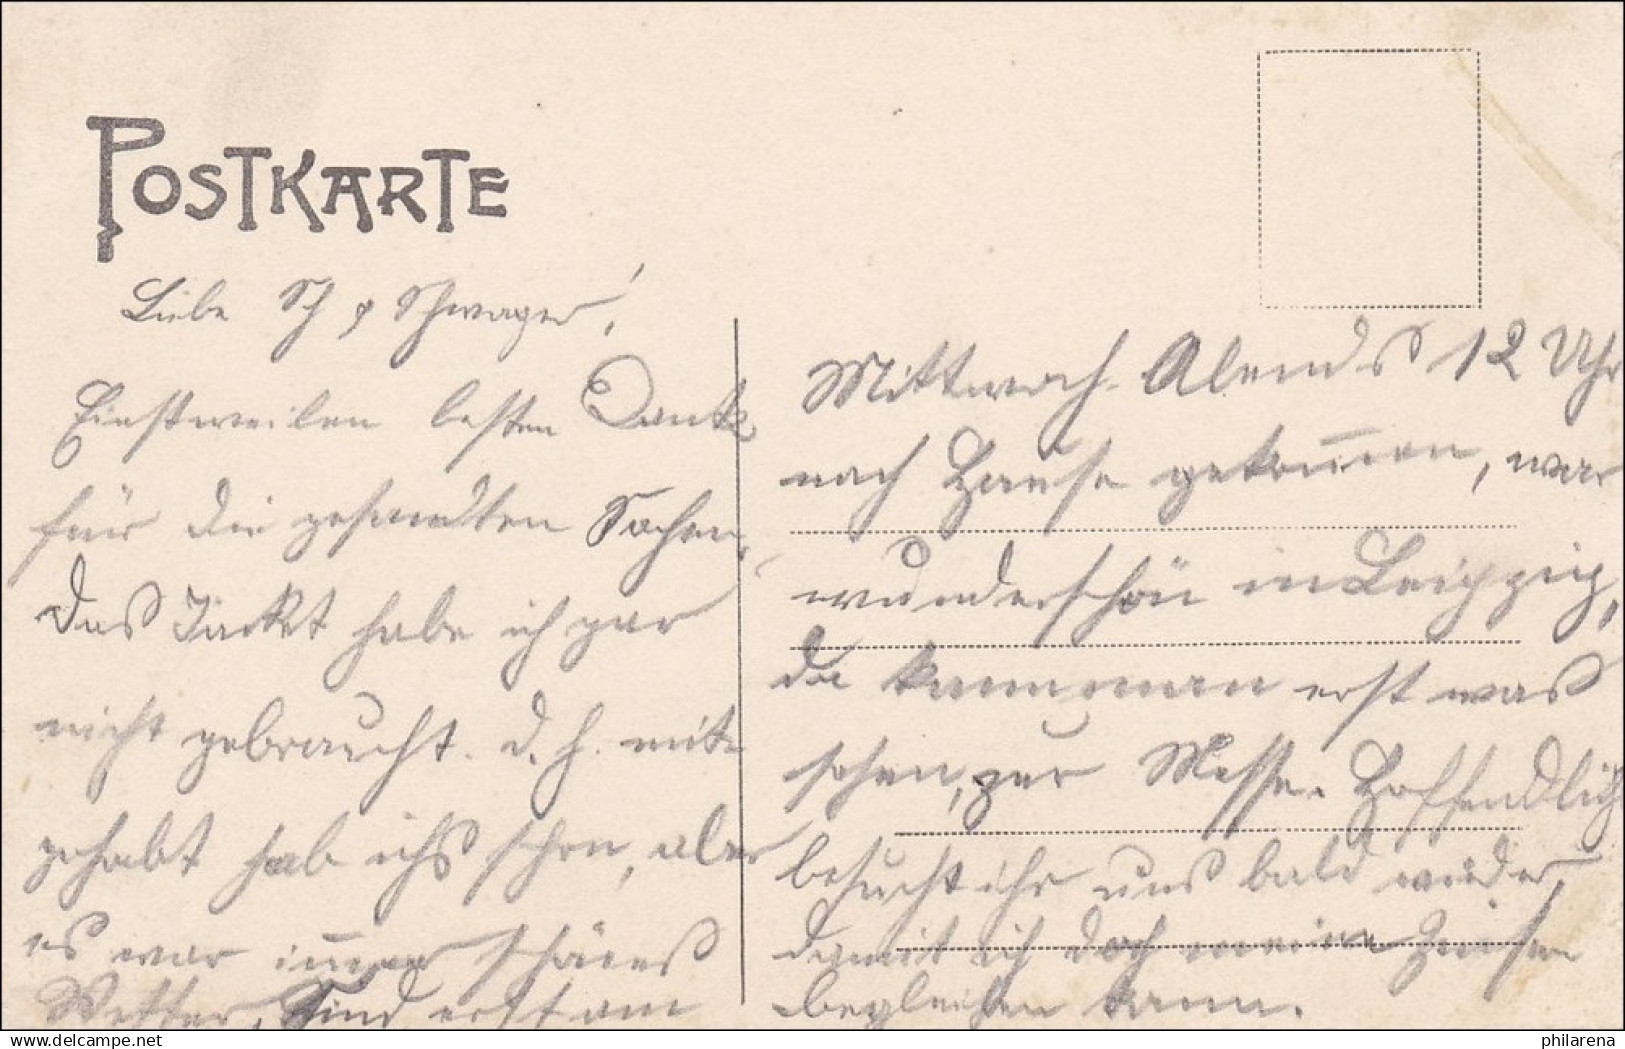 POSTKARTE
Liebe Sch & Schwager!
Einstweilen besten Dank
für die gesandten Sachen,
das Jackt habe ich gar
nicht gebraucht. d. h. mit
gehabt hab ichs schon, aber
es war immer schönes
Wetter. Sind erst am
Mittwoch Abends 12 Uhr
nach Hause gekommen, war
wunderschön in Leipzig,
da kann man erst was
sehen, zur Messe. Hoffendlich
besucht ihr uns bald wieder,
damit ich doch meine
begleichen kann.
philarena.com